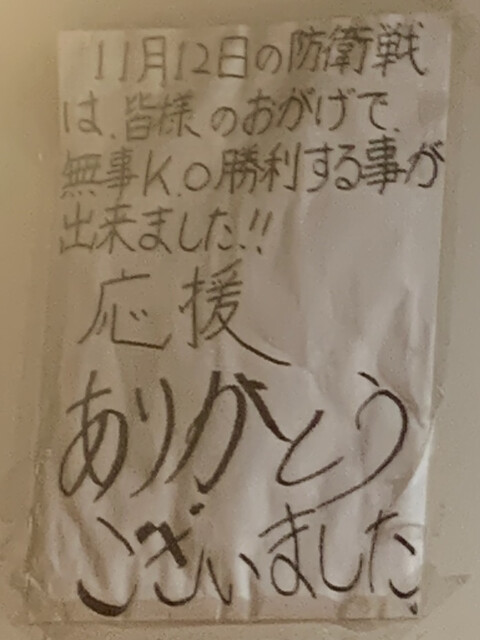 11月12日の防衛戦
は、皆様のおがげで、
無事K.O勝利する事が
出来ました!!
応援
ありがとう
ございました